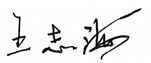 王志海